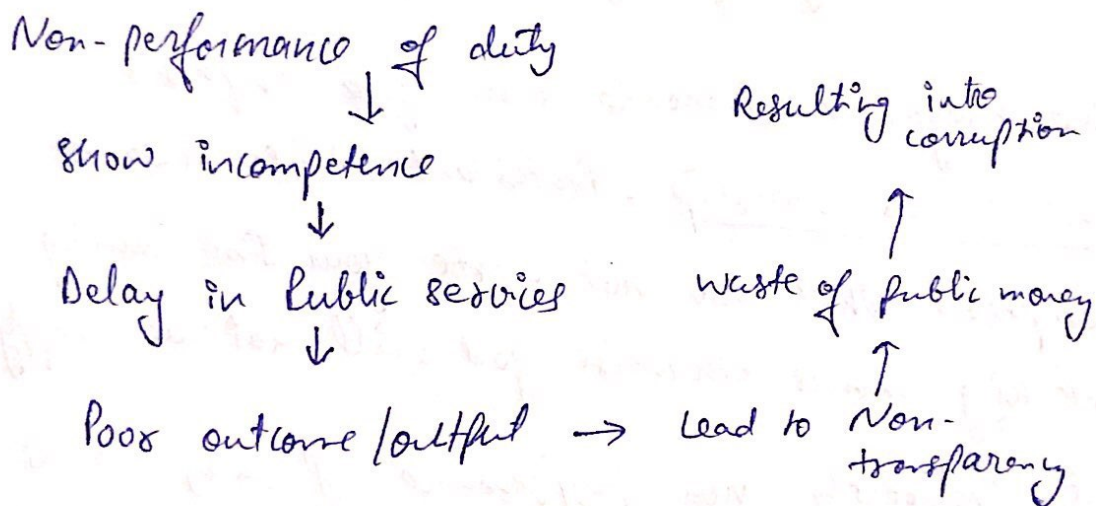 Non-performance of duty
↓
Show incompetence
↓
Delay in Public services
↓
Poor outcome/output → Lead to Non-
transparency
↑
waste of public money
↑
Resulting into
corruption